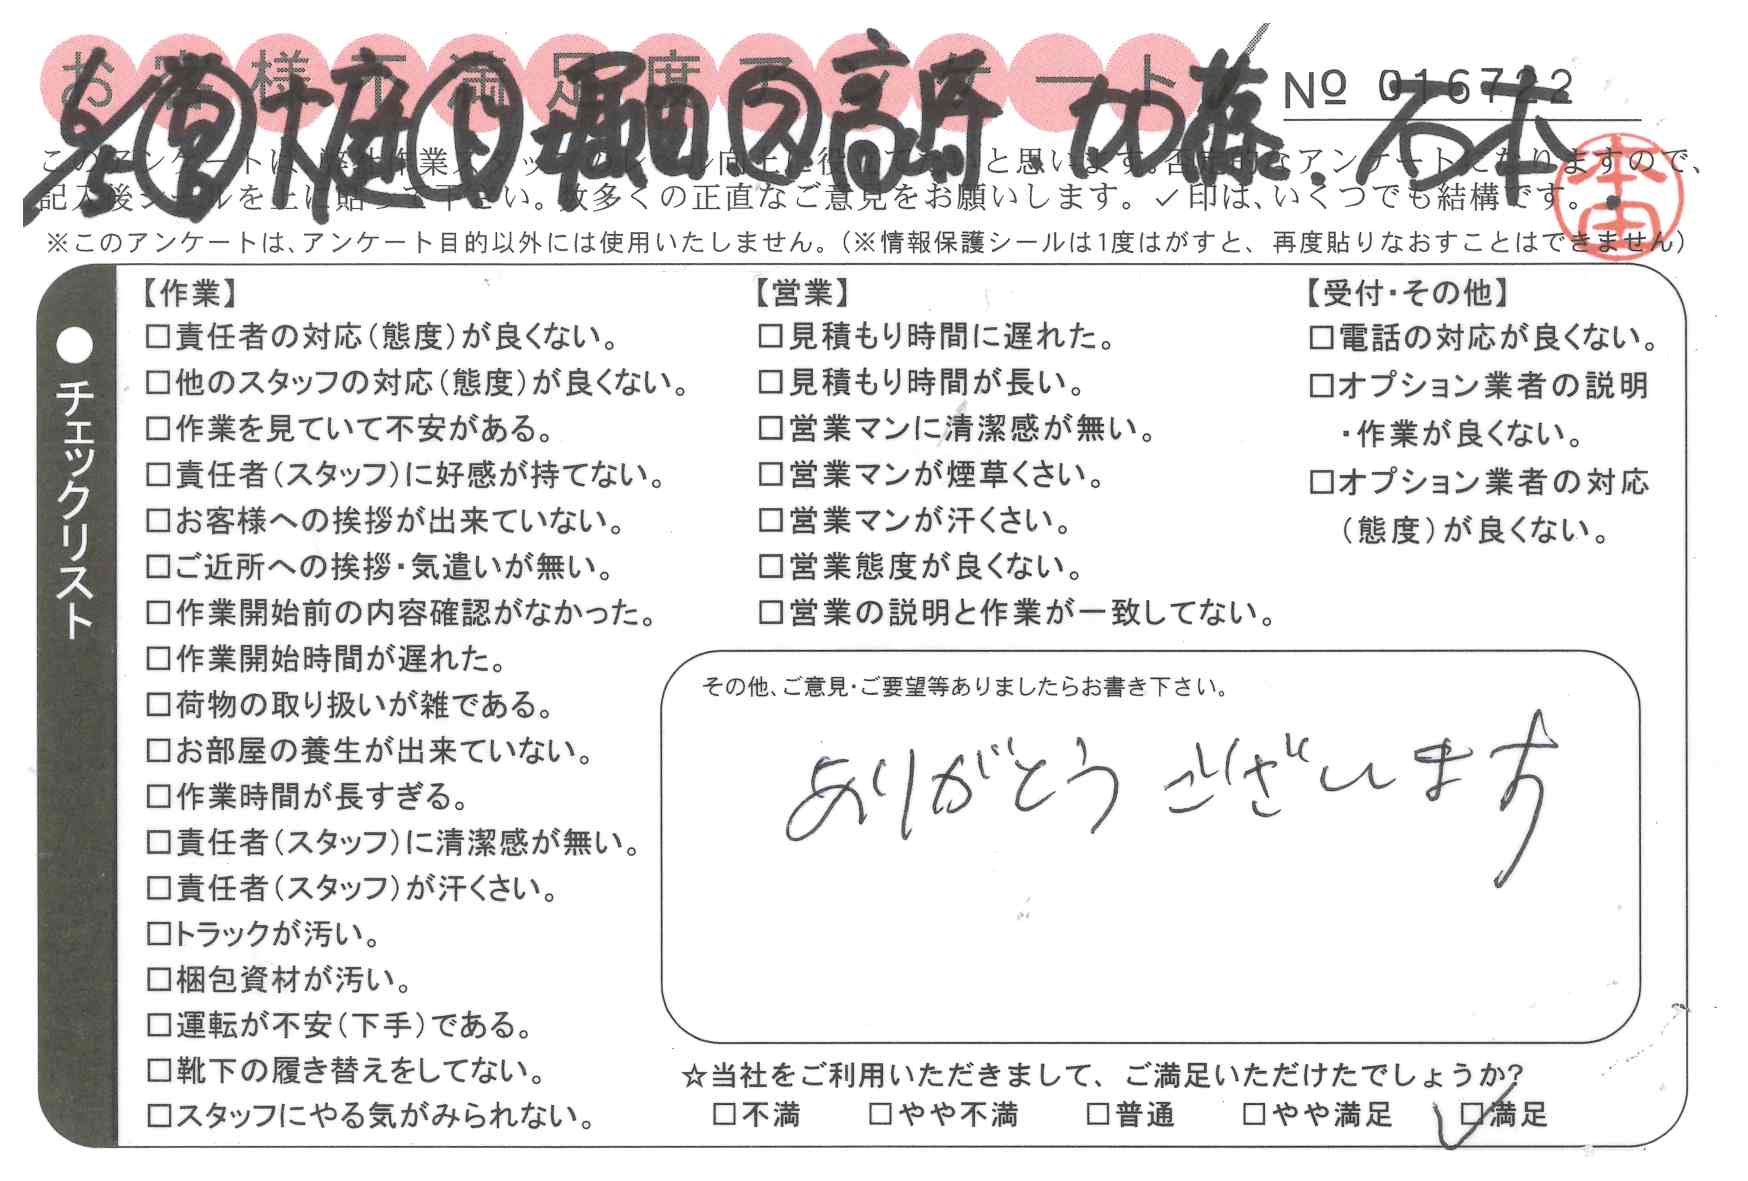 お客様不満足度アンケート
№ 016722
堀田 高府 加藤 石本
このアンケートは、弊社作業スタッフのレベル向上に役立てたいと思います。否定的なアンケートになりますので、
記入後シールを上に貼って下さい。数多くの正直なご意見をお願いします。✓印は、いくつでも結構です。
※このアンケートは、アンケート目的以外には使用いたしません。(※情報保護シールは1度はがすと、再度貼りなおすことはできません)
本田
●チェックリスト
【作業】
□責任者の対応(態度)が良くない。
□他のスタッフの対応(態度)が良くない。
□作業を見ていて不安がある。
□責任者(スタッフ)に好感が持てない。
□お客様への挨拶が出来ていない。
□ご近所への挨拶・気遣いが無い。
□作業開始前の内容確認がなかった。
□作業開始時間が遅れた。
□荷物の取り扱いが雑である。
□お部屋の養生が出来ていない。
□作業時間が長すぎる。
□責任者(スタッフ)に清潔感が無い。
□責任者(スタッフ)が汗くさい。
□トラックが汚い。
□梱包資材が汚い。
□運転が不安(下手)である。
□靴下の履き替えをしてない。
□スタッフにやる気がみられない。
【営業】
□見積もり時間に遅れた。
□見積もり時間が長い。
□営業マンに清潔感が無い。
□営業マンが煙草くさい。
□営業マンが汗くさい。
□営業態度が良くない。
□営業の説明と作業が一致してない。
【受付・その他】
□電話の対応が良くない。
□オプション業者の説明
・作業が良くない。
□オプション業者の対応
(態度)が良くない。
その他、ご意見・ご要望等ありましたらお書き下さい。
ありがとうございます
☆当社をご利用いただきまして、ご満足いただけたでしょうか?
□不満 □やや不満 □普通 □やや満足 □満足